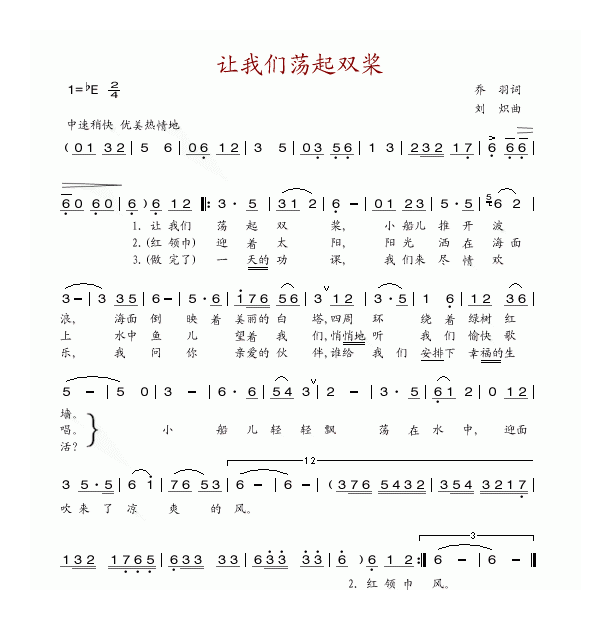 让我们荡起双桨
1=♭E 2/4 乔 羽词
刘 炽曲
中速稍快 优美热情地
(01 32 | 5 6 | 06 12 | 3 5 | 03 56 | 1 3 | 232 17 | 6 66 |
60 60 | 6) 6 12 |: 3 · 5 | 31 2 | 6 - | 01 23 | 5 · 5 | 5 6 0 |
1. 让 我们 荡 起 双 桨, 小 船儿 推 开 波
2.(红 领巾) 迎 着 太 阳, 阳 光 洒 在 海 面
3.(做 完了) 一 天的 功 课, 我 们来 尽 情 欢
3 - | 3 35 | 6 - | 5 · 6 | 176 56 | 3 12 | 3 · 5 | 1 6 | 12 36 |
浪, 海面 倒 映 着 美丽的 白 塔,四周 环 绕 着 绿树 红
上 水中 鱼 儿 望着 我 们,悄悄地 听 我 们 愉快 歌
乐, 我 问 你 亲爱的 伙 伴,谁给 我 们 安排下 幸福的 生
5 - | 5 0 | 3 - | 6 · 6 | 54 3 | 2 - | 3 · 5 | 61 2 | 0 12 |
墙。
唱。 小 船 儿 轻 轻 飘 荡 在 水 中, 迎面
活?
12
3 5 · 5 | 6 1 | 76 53 | 6 - | 6 - | (376 5432 | 354 3217 |
吹 来 了 凉 爽 的 风。
3
132 1765 | 633 33 | 132 1765 | 633 33 | 63 33 | 6 ·) 6 12 :| 6 - | 6 - |
2. 红 领 巾 风。